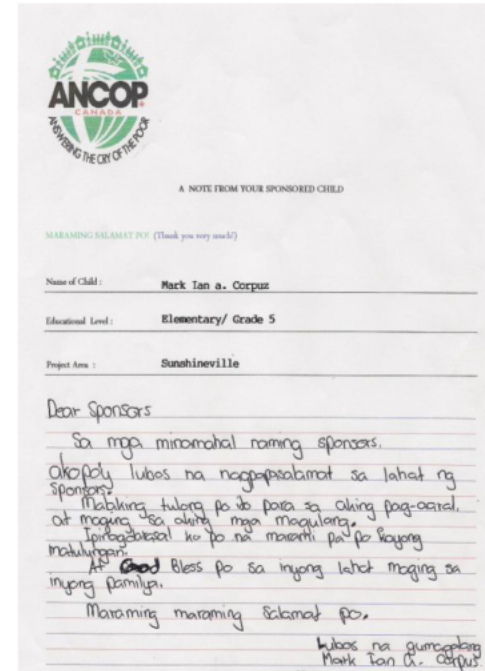 ANCOP
CANADA
ANSWERING THE CRY OF THE POOR
A NOTE FROM YOUR SPONSORED CHILD
MARAMING SALAMAT PO! (Thank you very much!)
Name of Child : Mark Ian a. Corpuz
Educational Level : Elementary/ Grade 5
Project Area : Sunshineville
Dear Sponsors
Sa mga minamahal naming sponsors.
ako po'y lubos na nagpapasalamat sa lahat ng
Sponsors.
Malaking tulong po ito para sa aking pag-aaral.
at maging sa aking mga magulang.
Ipinagdarasal ko po na marami pa po kayong
matulungan.
At Good Bless po sa inyong lahat maging sa
inyong pamilya.
Maraming maraming Salamat po.
Lubos na gumagalang
Mark Ian a. Corpus